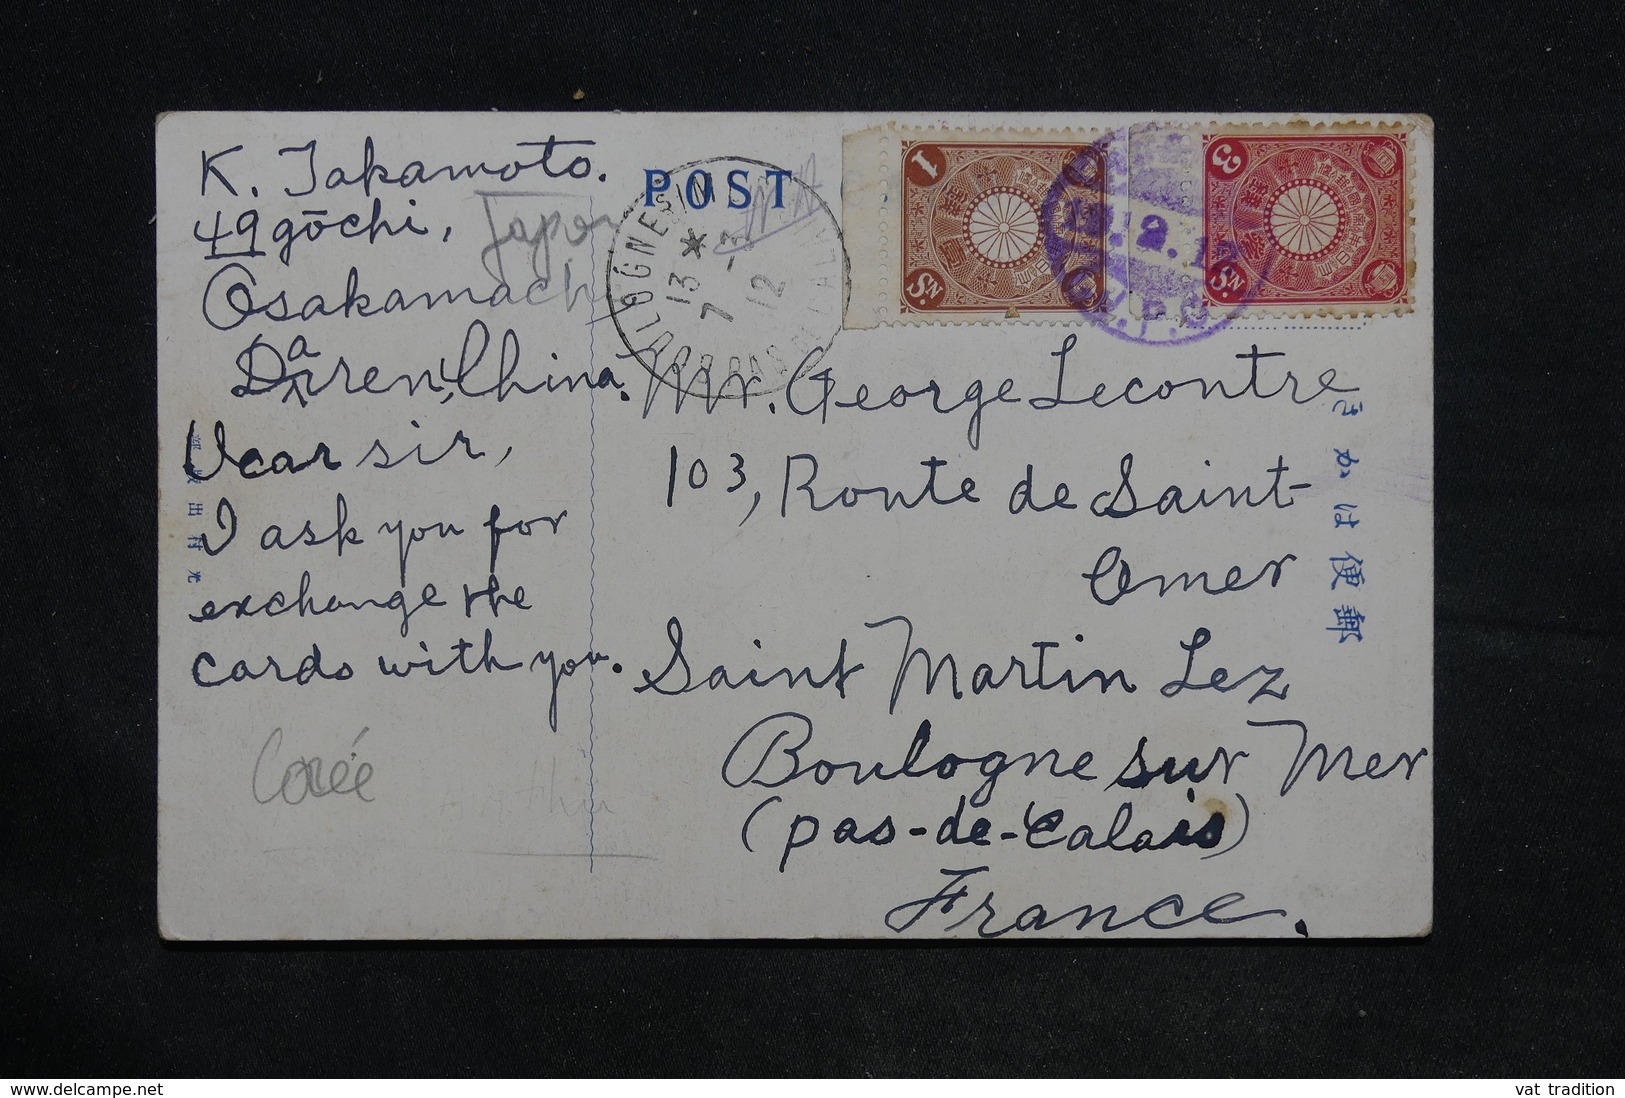 K. Takamoto.
49 gōchi,
Osakamachi
Dairen, China.
Dear sir,
I ask you for
exchange the
cards with you.
Japon
Corée
POST
13 *
7 - 3
12
1
Sn.
3
Sn.
.2.1
I.J.P.O
Mr. George Lecontre
103, Route de Saint-
Omer
Saint Martin Lez
Boulogne sur Mer
(pas-de-Calais)
France.
きかは便郵
www.delcampe.net
vat tradition